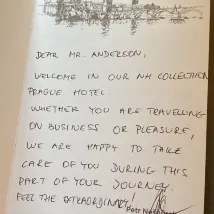 DEAR MR. ANDERSON,
WELCOME IN OUR NH COLLECTION
PRAGUE HOTEL.
WHETHER YOU ARE TRAVELLING
ON BUSINESS OR PLEASURE,
WE ARE HAPPY TO TAKE
CARE OF YOU DURING THIS
PART OF YOUR JOURNEY.
FEEL THE EXTRAORDINARY!
Petr